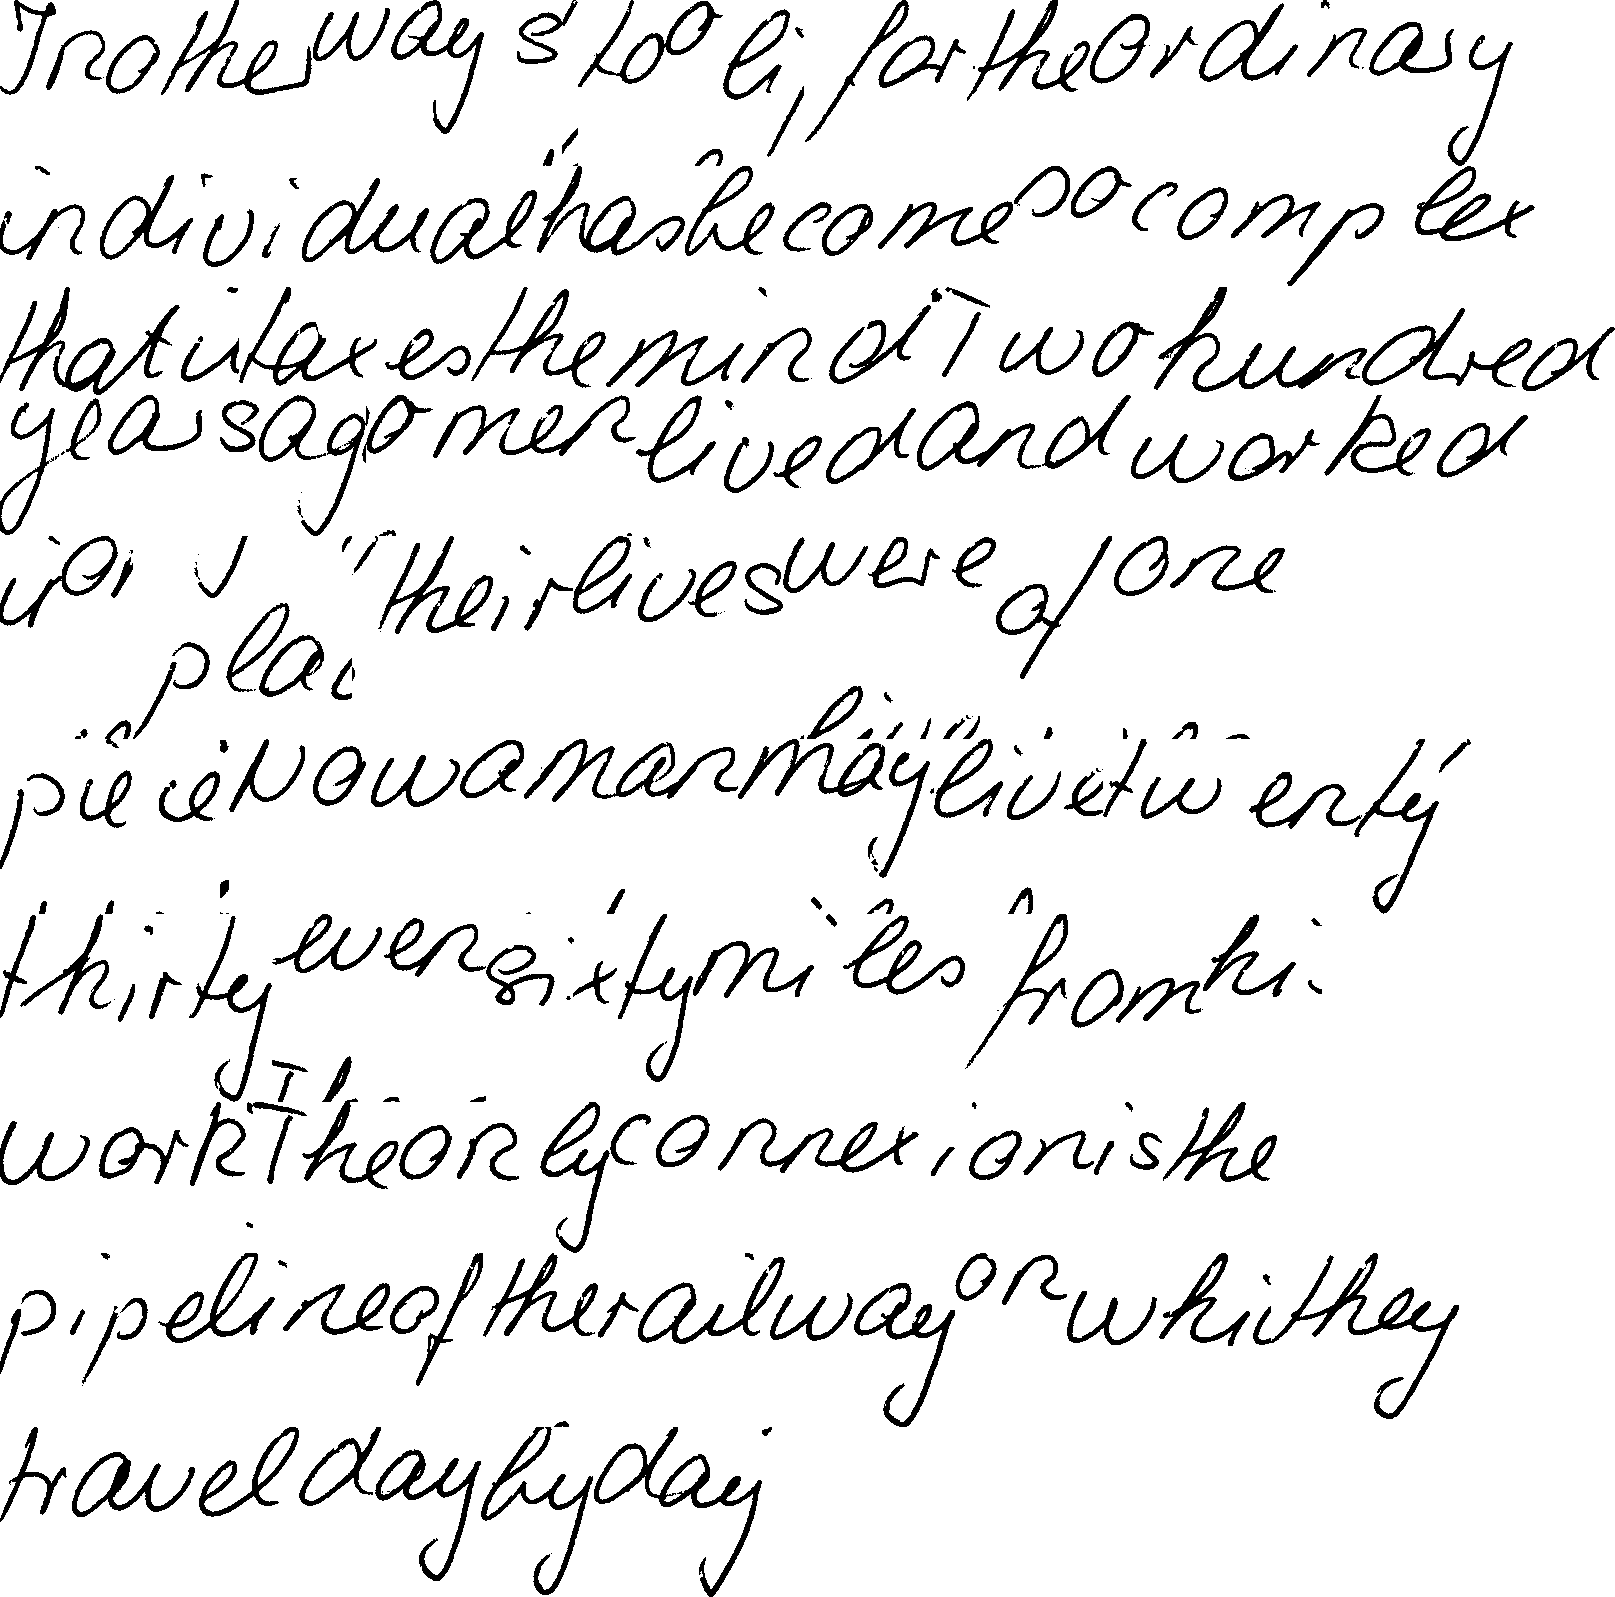 In other ways too li, for the ordinary
individual has become so complex
that it taxes the mind Two hundred
years ago men lived and worked
in their lives were of one
piece Now a man may live twenty
thirty even sixty miles from hi
work The only connexion is the
pipeline of the railway on which they
travel day by day